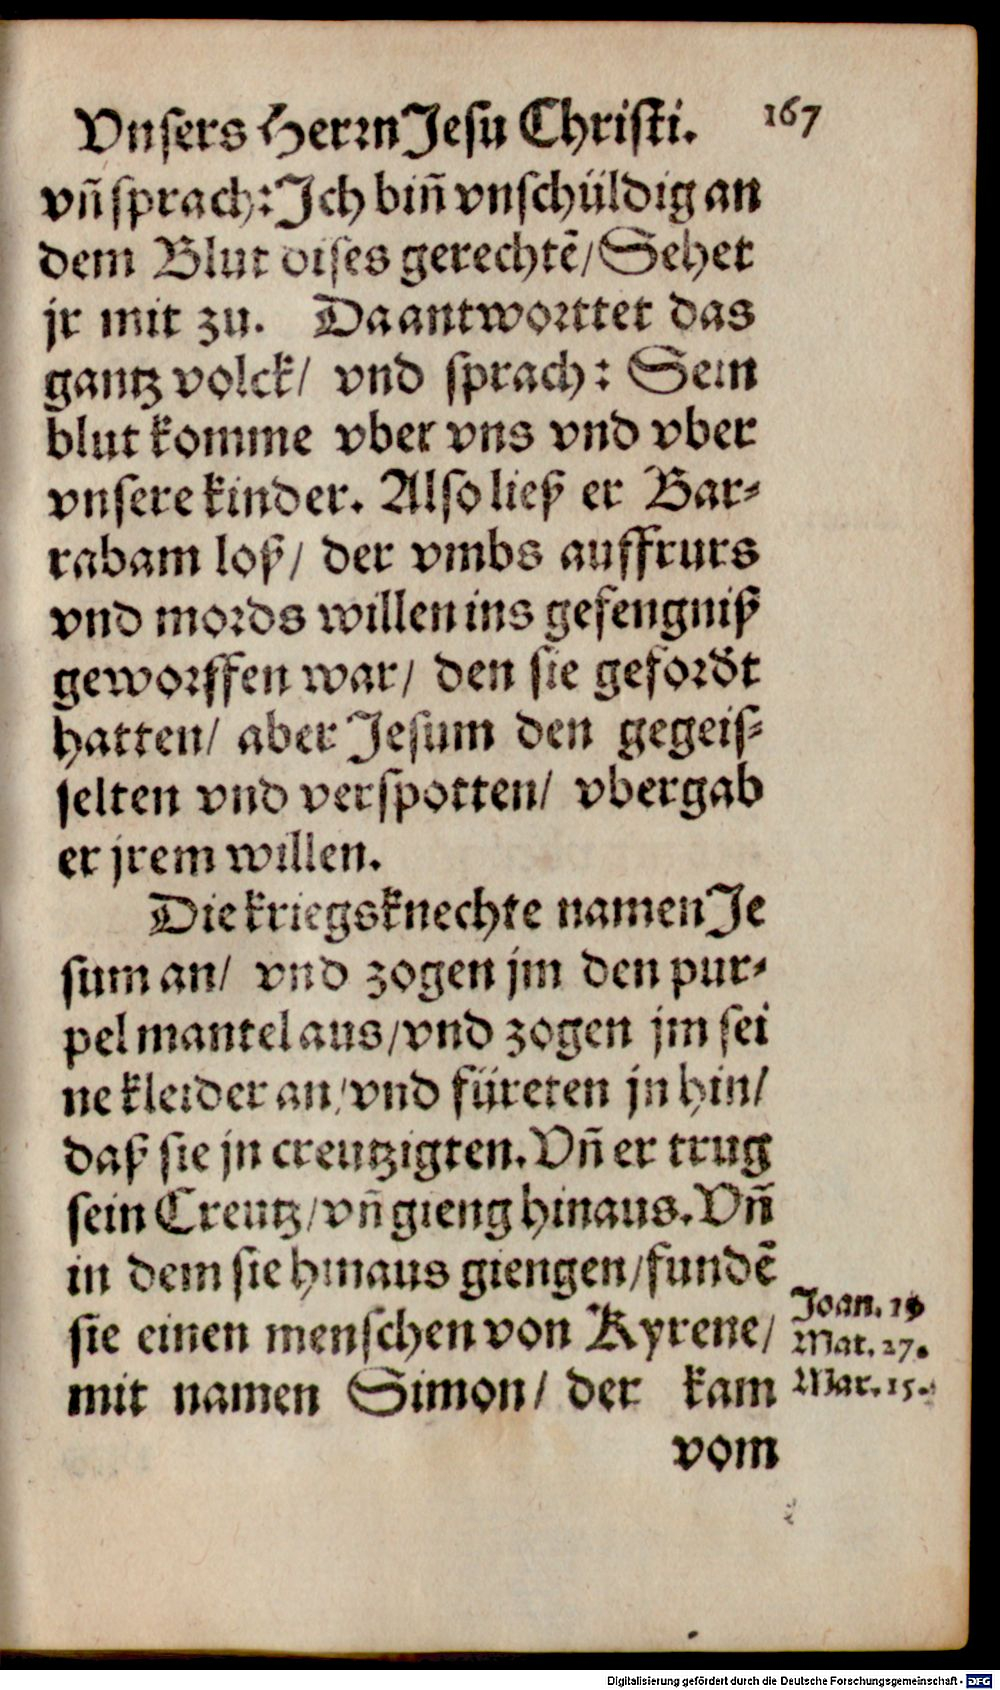 Vnsers Herrn Jesu Christi. 167
vn̄ sprach: Ich bin̄ vnschüldig an
dem Blut dises gerechtē/ Sehet
jr mit zu. Da antworttet das
gantz volck/ vnd sprach: Sein
blut komme vber vns vnd vber
vnsere kinder. Also ließ er Bar-
rabam loß/ der vmbs auffrurs
vnd mords willen ins gefengniß
geworffen war/ den sie gefordt
hatten/ aber Jesum den gegeis-
selten vnd verspotten/ vbergab
er jrem willen.
Die kriegsknechte namen Je
sum an/ vnd zogen jm den pur-
pel mantel aus/ vnd zogen jm sei
ne kleider an/ vnd füreten jn hin/
daß sie jn creutzigten. Vn̄ er trug
sein Creutz/ vn̄ gieng hinaus. Vn̄
in dem sie hinaus giengen/ fundē
sie einen menschen von Kyrene/
mit namen Simon/ der kam
Joan. 19
Mat. 27.
Mar. 15.
vom
Digitalisierung gefördert durch die Deutsche Forschungsgemeinschaft - DFG